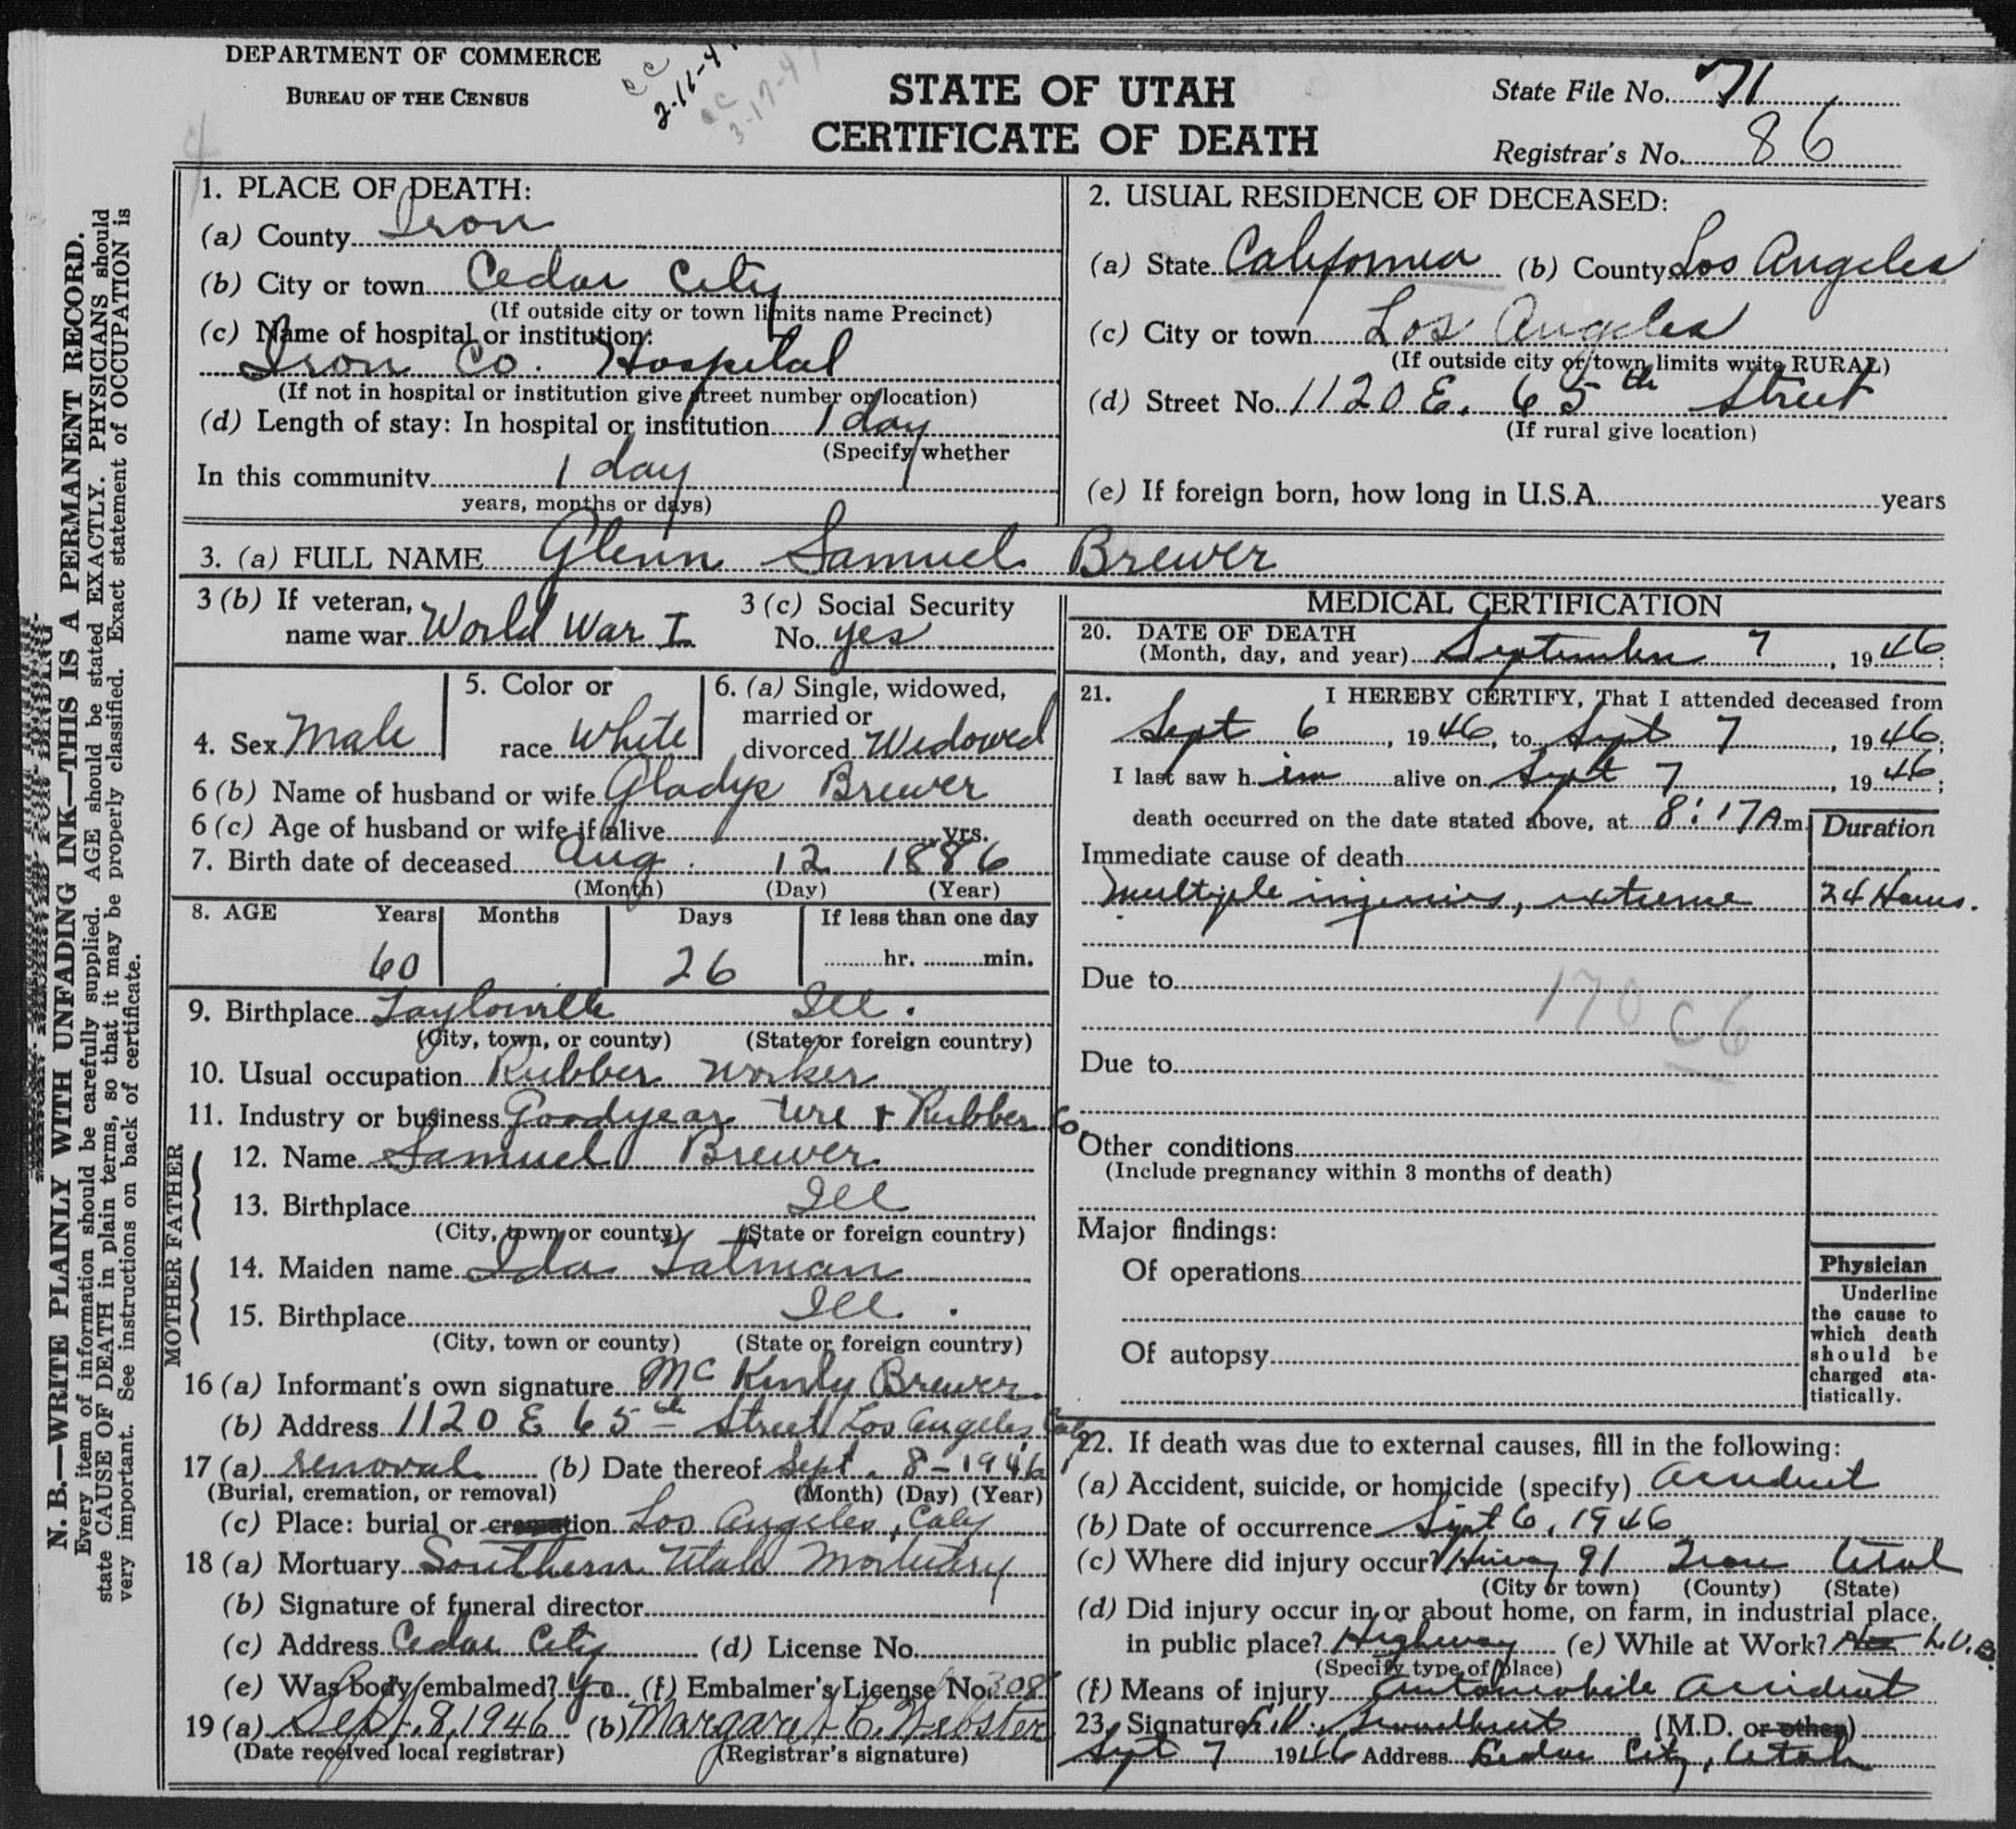 DEPARTMENT OF COMMERCE
BUREAU OF THE CENSUS
cc 2-11-4
cc 3-17-47
STATE OF UTAH
CERTIFICATE OF DEATH
State File No. 71
Registrar's No. 86
N. B.—WRITE PLAINLY WITH UNFADING INK—THIS IS A PERMANENT RECORD.
Every item of information should be carefully supplied. AGE should be stated EXACTLY. PHYSICIANS should
state CAUSE OF DEATH in plain terms, so that it may be properly classified. Exact statement of OCCUPATION is
very important. See instructions on back of certificate.
1. PLACE OF DEATH:
(a) County Iron
(b) City or town Cedar City
(If outside city or town limits name Precinct)
(c) Name of hospital or institution:
Iron Co. Hospital
(If not in hospital or institution give street number or location)
(d) Length of stay: In hospital or institution 1 day
(Specify whether
In this community 1 day
years, months or days)
2. USUAL RESIDENCE OF DECEASED:
(a) State California (b) County Los Angeles
(c) City or town Los Angeles
(If outside city or town limits write RURAL)
(d) Street No. 1120 E. 65th Street
(If rural give location)
(e) If foreign born, how long in U.S.A. years
3. (a) FULL NAME Glenn Samuel Brewer
3 (b) If veteran, name war World War I
3 (c) Social Security No. yes
4. Sex Male
5. Color or race White
6. (a) Single, widowed, married or divorced Widowed
6 (b) Name of husband or wife Gladys Brewer
6 (c) Age of husband or wife if alive yrs.
7. Birth date of deceased Aug. 12 1886
(Month) (Day) (Year)
8. AGE Years Months Days If less than one day
60 26 hr. min.
9. Birthplace Taylorville Ill.
(City, town, or county) (State or foreign country)
10. Usual occupation Rubber worker
11. Industry or business Goodyear tire + Rubber Co.
FATHER
12. Name Samuel Brewer
13. Birthplace Ill
(City, town or county) (State or foreign country)
MOTHER
14. Maiden name Ida Tatman
15. Birthplace Ill.
(City, town or county) (State or foreign country)
16 (a) Informant's own signature McKinly Brewer
(b) Address 1120 E 65th Street Los Angeles, Calif
17 (a) removal (b) Date thereof Sept. 8-1946
(Burial, cremation, or removal) (Month) (Day) (Year)
(c) Place: burial or cremation Los Angeles, Calif
18 (a) Mortuary Southern Utah Mortuary
(b) Signature of funeral director
(c) Address Cedar City (d) License No.
(e) Was body embalmed? yes (f) Embalmer's License No. 308
19 (a) Sept. 8, 1946 (b) Margaret C. Webster
(Date received local registrar) (Registrar's signature)
MEDICAL CERTIFICATION
20. DATE OF DEATH
(Month, day, and year) September 7, 1946;
21. I HEREBY CERTIFY, That I attended deceased from
Sept 6, 1946, to Sept 7, 1946;
I last saw him alive on Sept 7, 1946;
death occurred on the date stated above, at 8:17 A m.
Duration
Immediate cause of death
Multiple injuries, extreme 24 Hours.
Due to
170 c 6
Due to
Other conditions
(Include pregnancy within 3 months of death)
Major findings:
Of operations
Of autopsy
Physician
Underline
the cause to
which death
should be
charged sta-
tistically.
22. If death was due to external causes, fill in the following:
(a) Accident, suicide, or homicide (specify) Accident
(b) Date of occurrence Sept 6, 1946
(c) Where did injury occur? Hiway 91 Iron Utah
(City or town) (County) (State)
(d) Did injury occur in or about home, on farm, in industrial place,
in public place? Highway (e) While at Work?
(Specify type of place)
(f) Means of injury Automobile Accident
23. Signature (M.D. or other)
Sept 7 1946 Address Cedar City, Utah